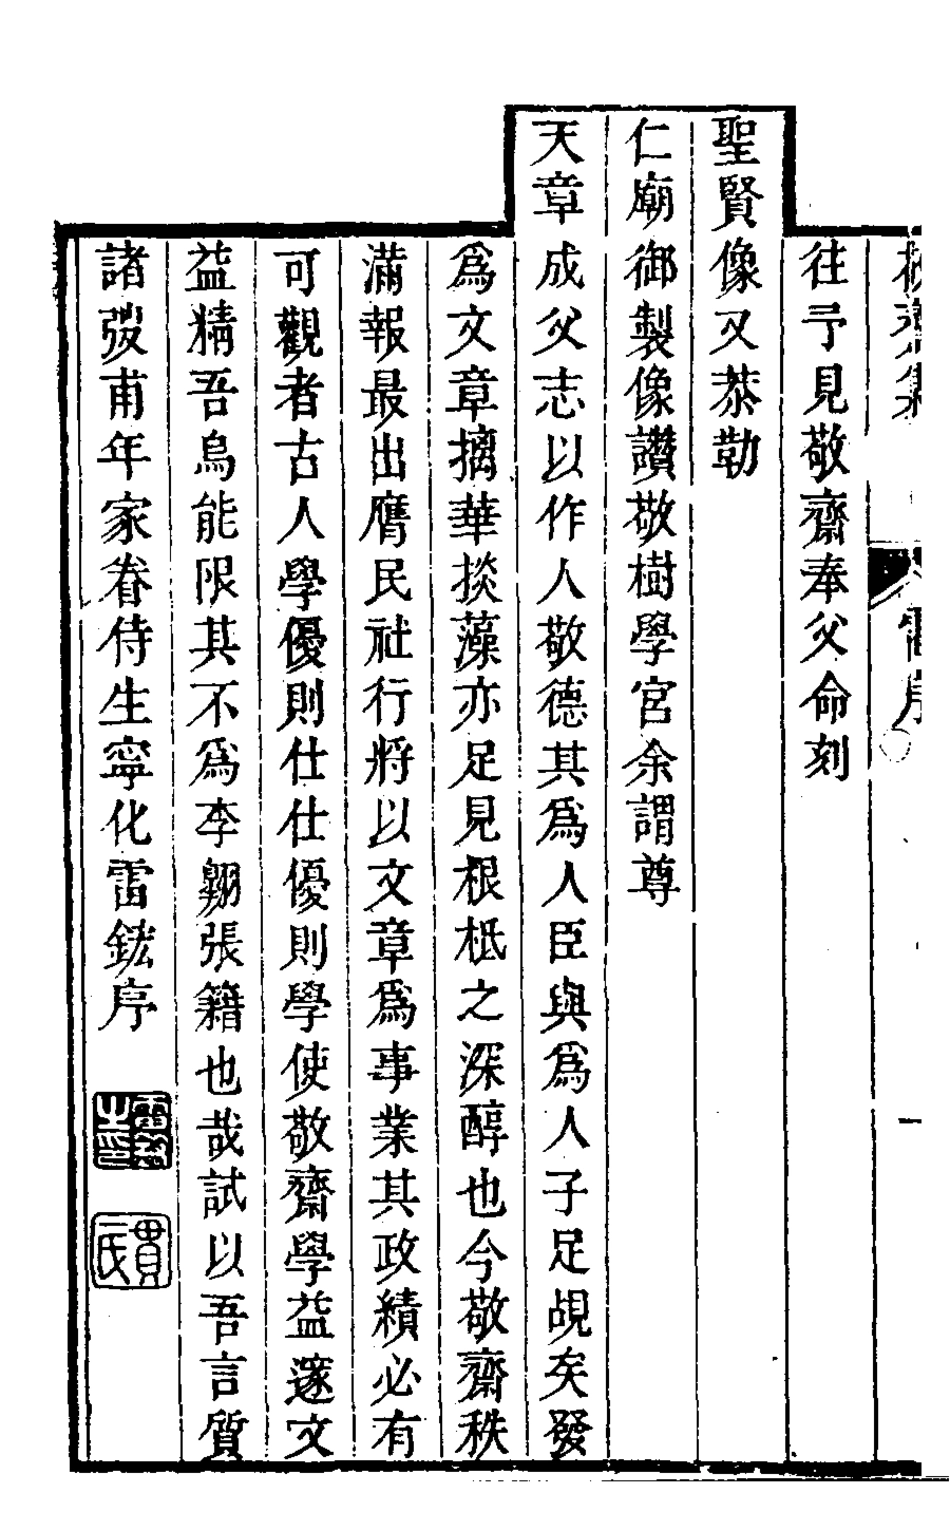 雷序
一
往予見敬齋奉父命刻
聖賢像又恭勒
仁廟御製像讚敬樹學宮余謂尊
天章成父志以作人敬德其爲人臣與爲人子足覘矣發
爲文章摛華掞藻亦足見根柢之深醇也今敬齋秩
滿報最出膺民社行將以文章爲事業其政績必有
可觀者古人學優則仕仕優則學使敬齋學益邃文
益精吾烏能限其不爲李翶張籍也哉試以吾言質
諸弢甫年家眷侍生寧化雷鋐序
貫一氏